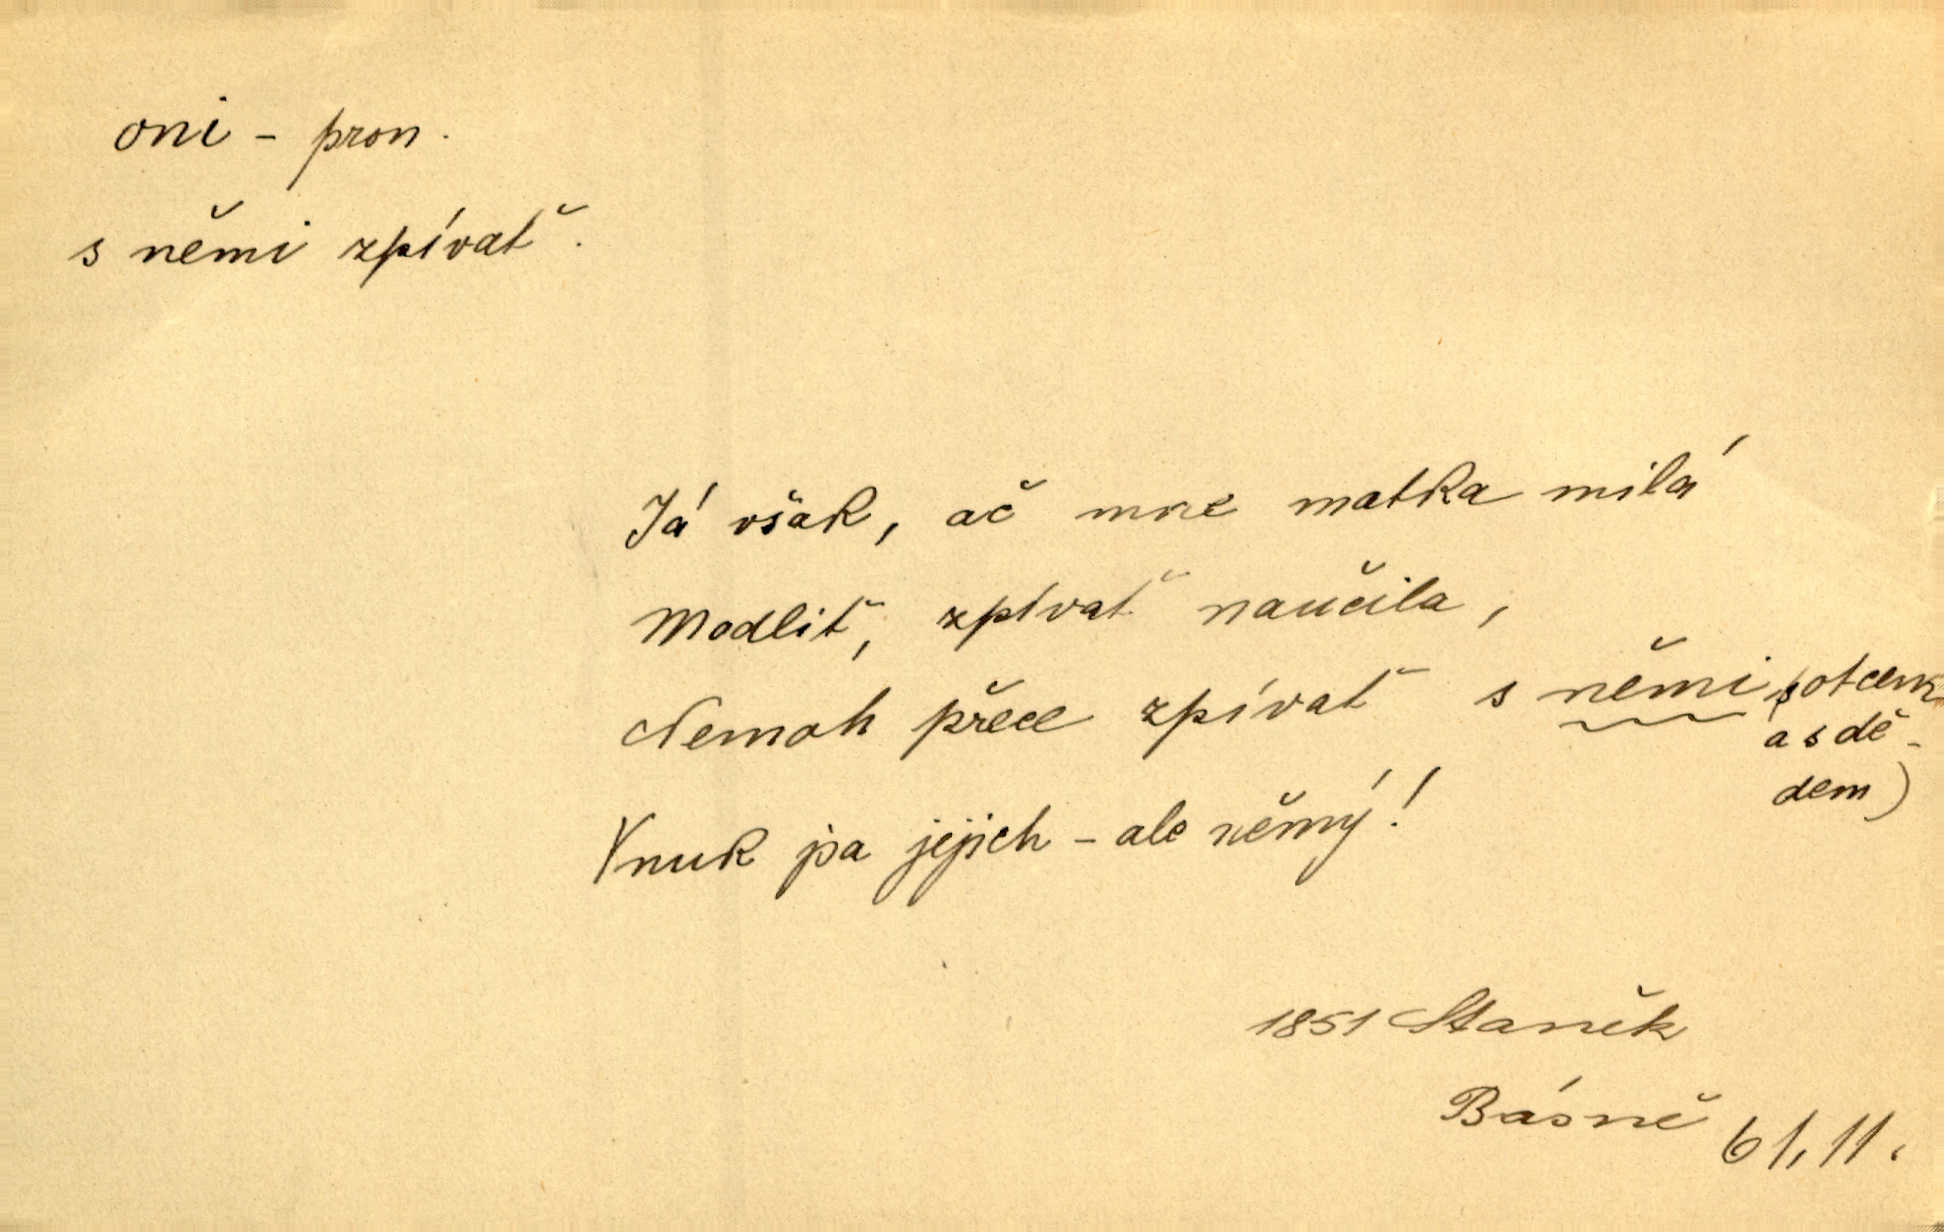 oni - pron.
s němi zpívať.
Já však, ač mne matka milá
Modliť, zpívať naučila,
Nemoh přece zpívať s němi (s otcem
a s dě-
dem)
Vnuk jsa jejich - ale němý!
1851 Staněk
Básně 61, 11.